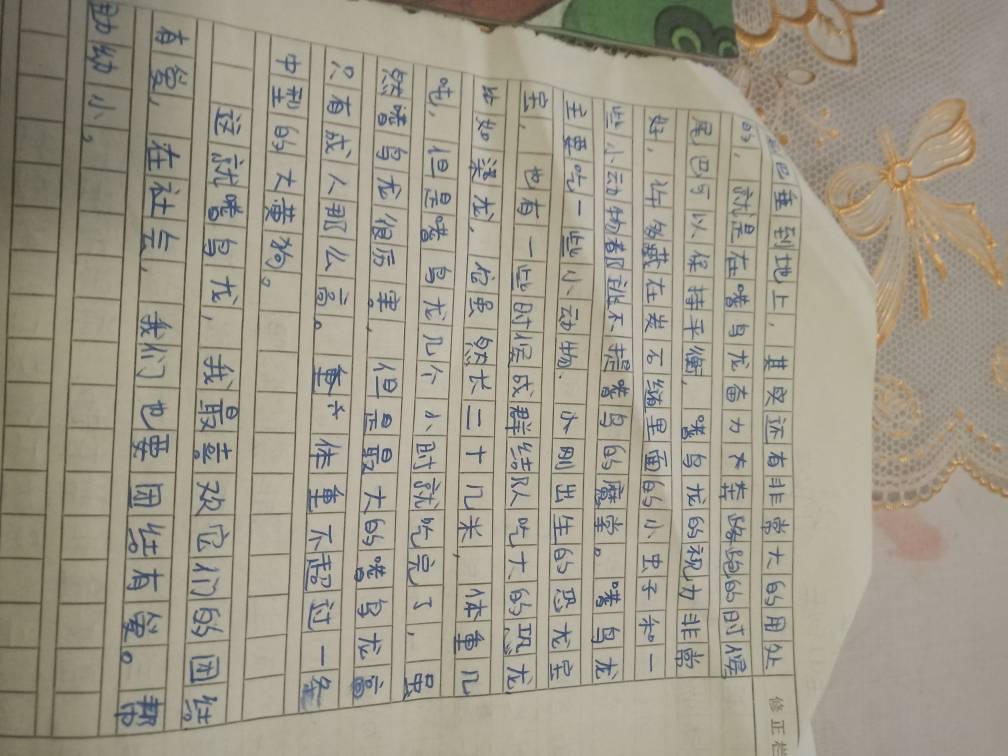 巴垂到地上，其实还有非常大的用处
的，就是在嗜鸟龙奋力奔跑的时候
尾巴可以保持平衡，嗜鸟龙的视力非常
好，许多藏在岩石缝里面的小虫子和一
些小动物都逃不掉嗜鸟的魔掌。嗜鸟龙
主要吃一些小动物.小刚出生的恐龙宝
宝，也有一些时候成群结队吃大的恐龙
比如梁龙，它虽然长二十几米，体重几
吨，但是嗜鸟龙几个小时就吃完了，虽
然嗜鸟龙很厉害，但是最大的嗜鸟龙高
只有成人那么高。体重不超过一条
中型的大黄狗。
这就嗜鸟龙，我最喜欢它们的团结
有爱，在社会，我们也要团结有爱。帮
助幼小。
修正栏